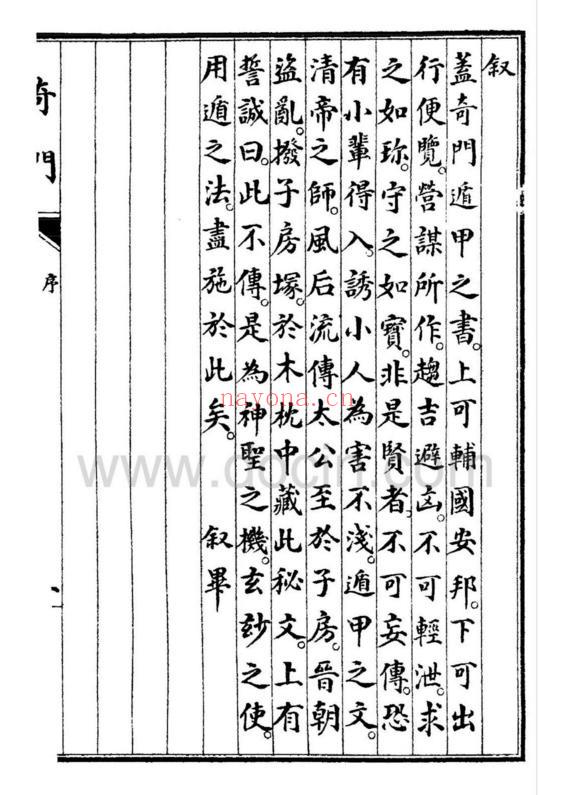 叙
蓋奇門遁甲之書。上可輔國安邦。下可出
行便覽。營謀所作。趨吉避凶。不可輕泄。求
之如珎。守之如寶。非是賢者。不可妄傳。恐
有小輩得入。誘小人為害不淺。遁甲之文。
清帝之師。風后流傳太公至於子房。晉朝
盜亂。撥子房塚。於木枕中藏此秘文。上有
誓誠曰。此不傳。是為神聖之機。玄妙之使。
用遁之法。盡施於此矣。 叙畢
奇門
序
nayona.cn
www.docin.com